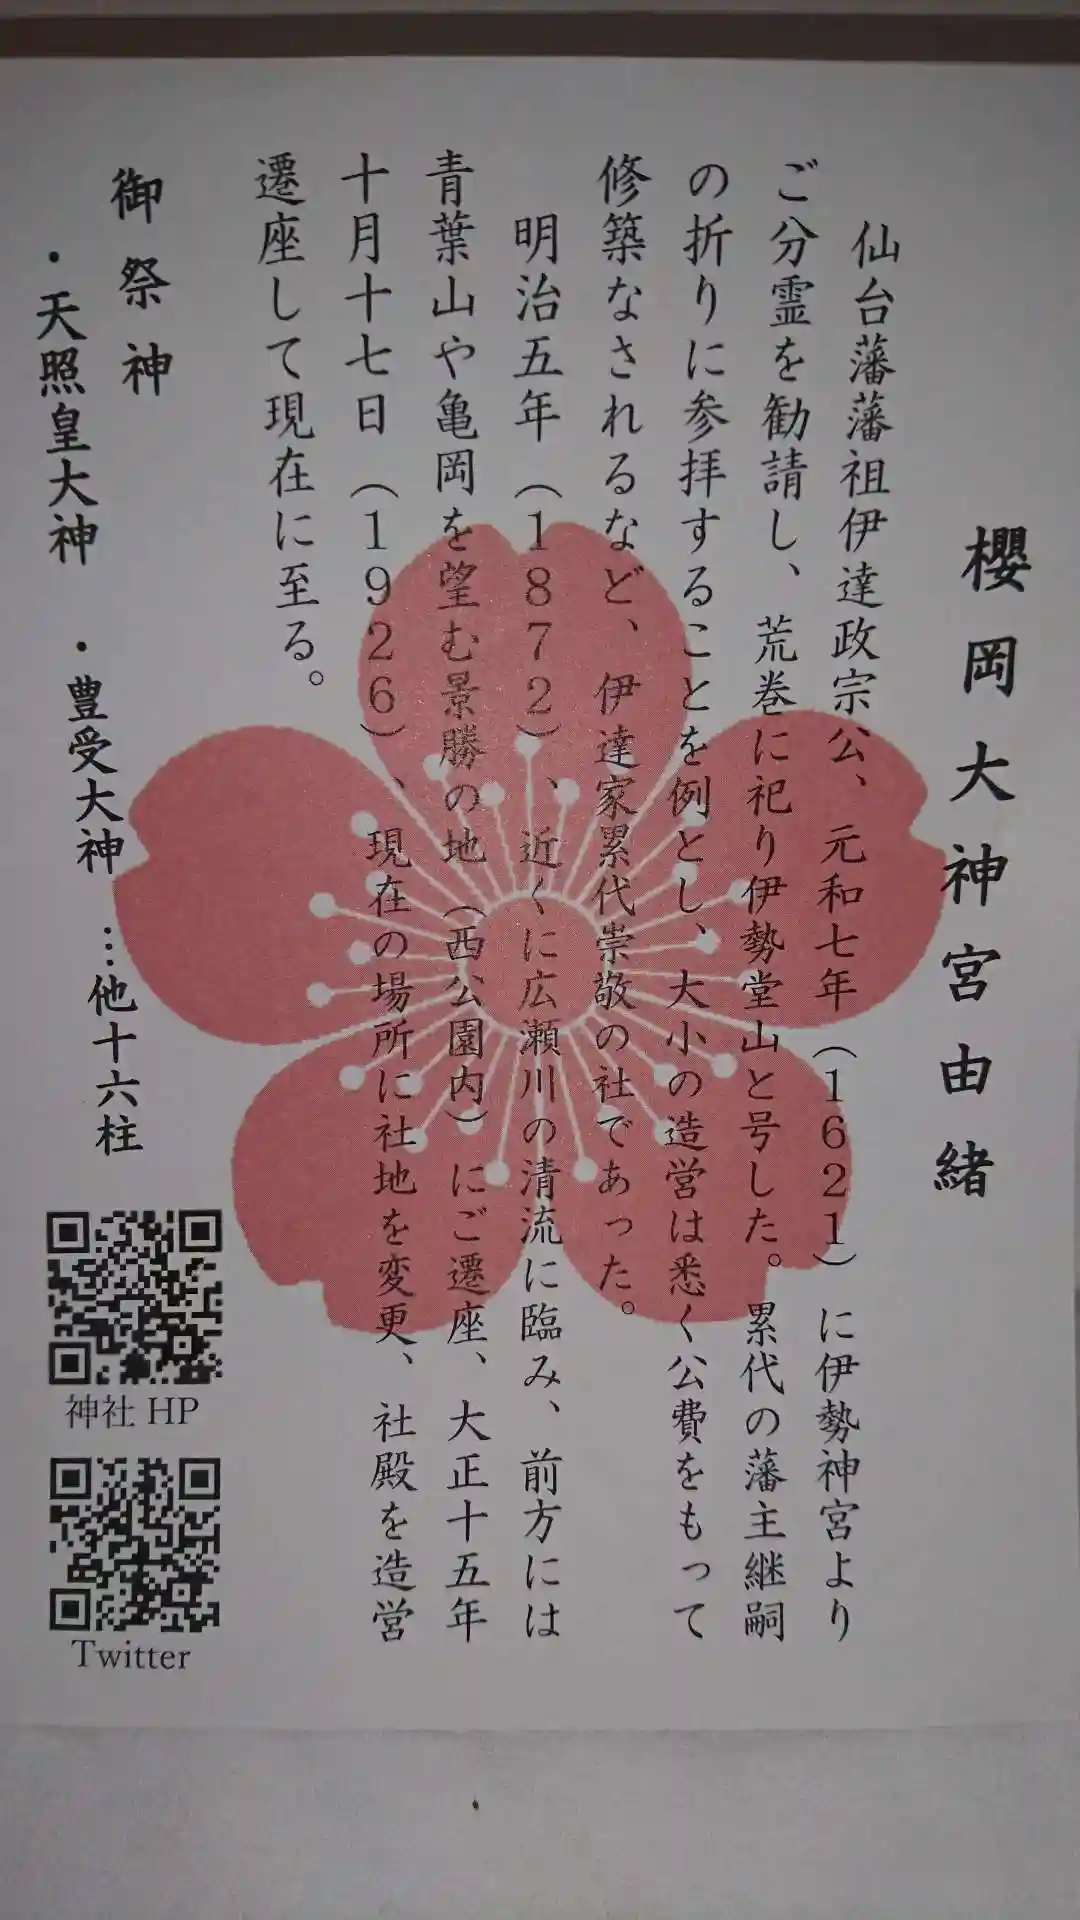 櫻岡大神宮由緒
仙台藩藩祖伊達政宗公、元和七年（1621）に伊勢神宮より
ご分霊を勧請し、荒巻に祀り伊勢堂山と号した。累代の藩主継嗣
の折りに参拝することを例とし、大小の造営は悉く公費をもって
修築なされるなど、伊達家累代崇敬の社であった。
明治五年（1872）、近くに広瀬川の清流に臨み、前方には
青葉山や亀岡を望む景勝の地（西公園内）にご遷座、大正十五年
十月十七日（1926）、現在の場所に社地を変更、社殿を造営
遷座して現在に至る。
御祭神
・天照皇大神　・豊受大神　…他十六柱
神社 HP
Twitter